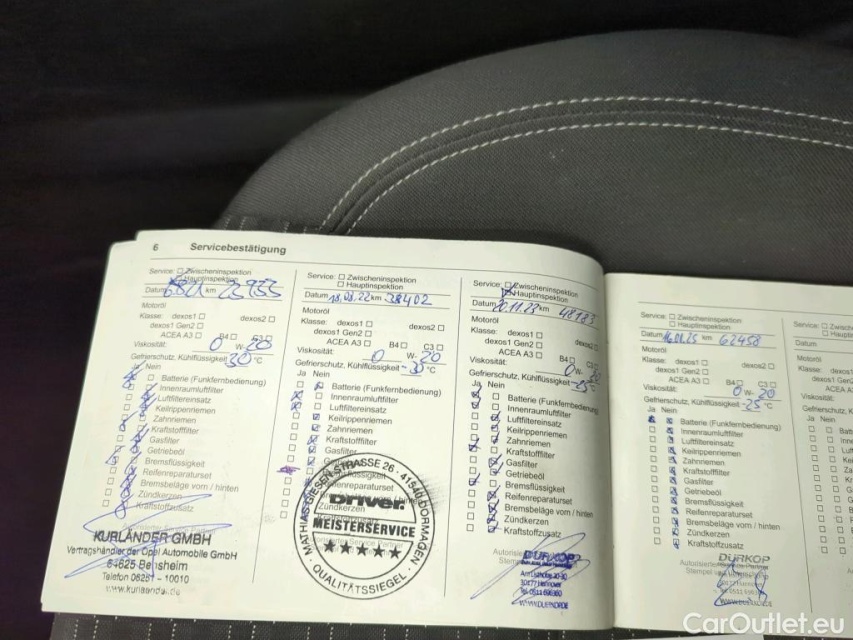 6 Servicebestätigung
Service: Zwischeninspektion
Hauptinspektion
Datum km 23955
Motoröl
Klasse: dexos1 dexos2
dexos1 Gen2
ACEA A3 B4 C3
Viskosität: 0 W- 20
Gefrierschutz, Kühlflüssigkeit 30 °C
Ja Nein
Batterie (Funkfernbedienung)
Innenraumluftfilter
Luftfiltereinsatz
Keilrippenriemen
Zahnriemen
Kraftstofffilter
Gasfilter
Getriebeöl
Bremsflüssigkeit
Reifenreparaturset
Bremsbeläge vorn / hinten
Zündkerzen
Kraftstoffzusatz
KURLÄNDER GMBH
Vertragshändler der Opel Automobile GmbH
64625 Bensheim
Telefon 06251 - 10010
www.kurlaender.de
Service: Zwischeninspektion
Hauptinspektion
Datum 18.08.22 km 38402
Motoröl
Klasse: dexos1 dexos2
dexos1 Gen2
ACEA A3 B4 C3
Viskosität: 0 W- 20
Gefrierschutz, Kühlflüssigkeit -30 °C
Ja Nein
Batterie (Funkfernbedienung)
Innenraumluftfilter
Luftfiltereinsatz
Keilrippenriemen
Zahnriemen
Kraftstofffilter
Gasfilter
Reifenreparaturset
vorn / hinten
Zündkerzen
MATHIAS-GIESEN-STRASSE 26 · 41540 DORMAGEN
Driver
MEISTERSERVICE
QUALITÄTSSIEGEL
Service: Zwischeninspektion
Hauptinspektion
Datum 20.11.23 km 48183
Motoröl
Klasse: dexos1
dexos1 Gen2
ACEA A3 B4
Viskosität: 0 W-
Gefrierschutz, Kühlflüssigkeit -25 °C
Ja Nein
Batterie (Funkfernbedienung
Innenraumluftfilter
Luftfiltereinsatz
Keilrippenriemen
Zahnriemen
Kraftstofffilter
Gasfilter
Getriebeöl
Bremsflüssigkeit
Reifenreparaturset
Bremsbeläge vorn / hinten
Zündkerzen
Kraftstoffzusatz
DÜRKOP
30177 Hannover
Service: Zwischeninspektion
Hauptinspektion
Datum 16.01.25 km 62458
Motoröl
Klasse: dexos1 dexos2
dexos1 Gen2
ACEA A3 B4 C3
Viskosität: 0 W- 20
Gefrierschutz, Kühlflüssigkeit -25 °C
Ja Nein
Batterie (Funkfernbedienung)
Innenraumluftfilter
Luftfiltereinsatz
Keilrippenriemen
Zahnriemen
Kraftstofffilter
Gasfilter
Getriebeöl
Bremsflüssigkeit
Reifenreparaturset
Bremsbeläge vorn / hinten
Zündkerzen
Kraftstoffzusatz
DÜRKOP
Service:
Datum
Motoröl
Klasse:
Viskosität:
Ja Nein
CarOutlet.eu